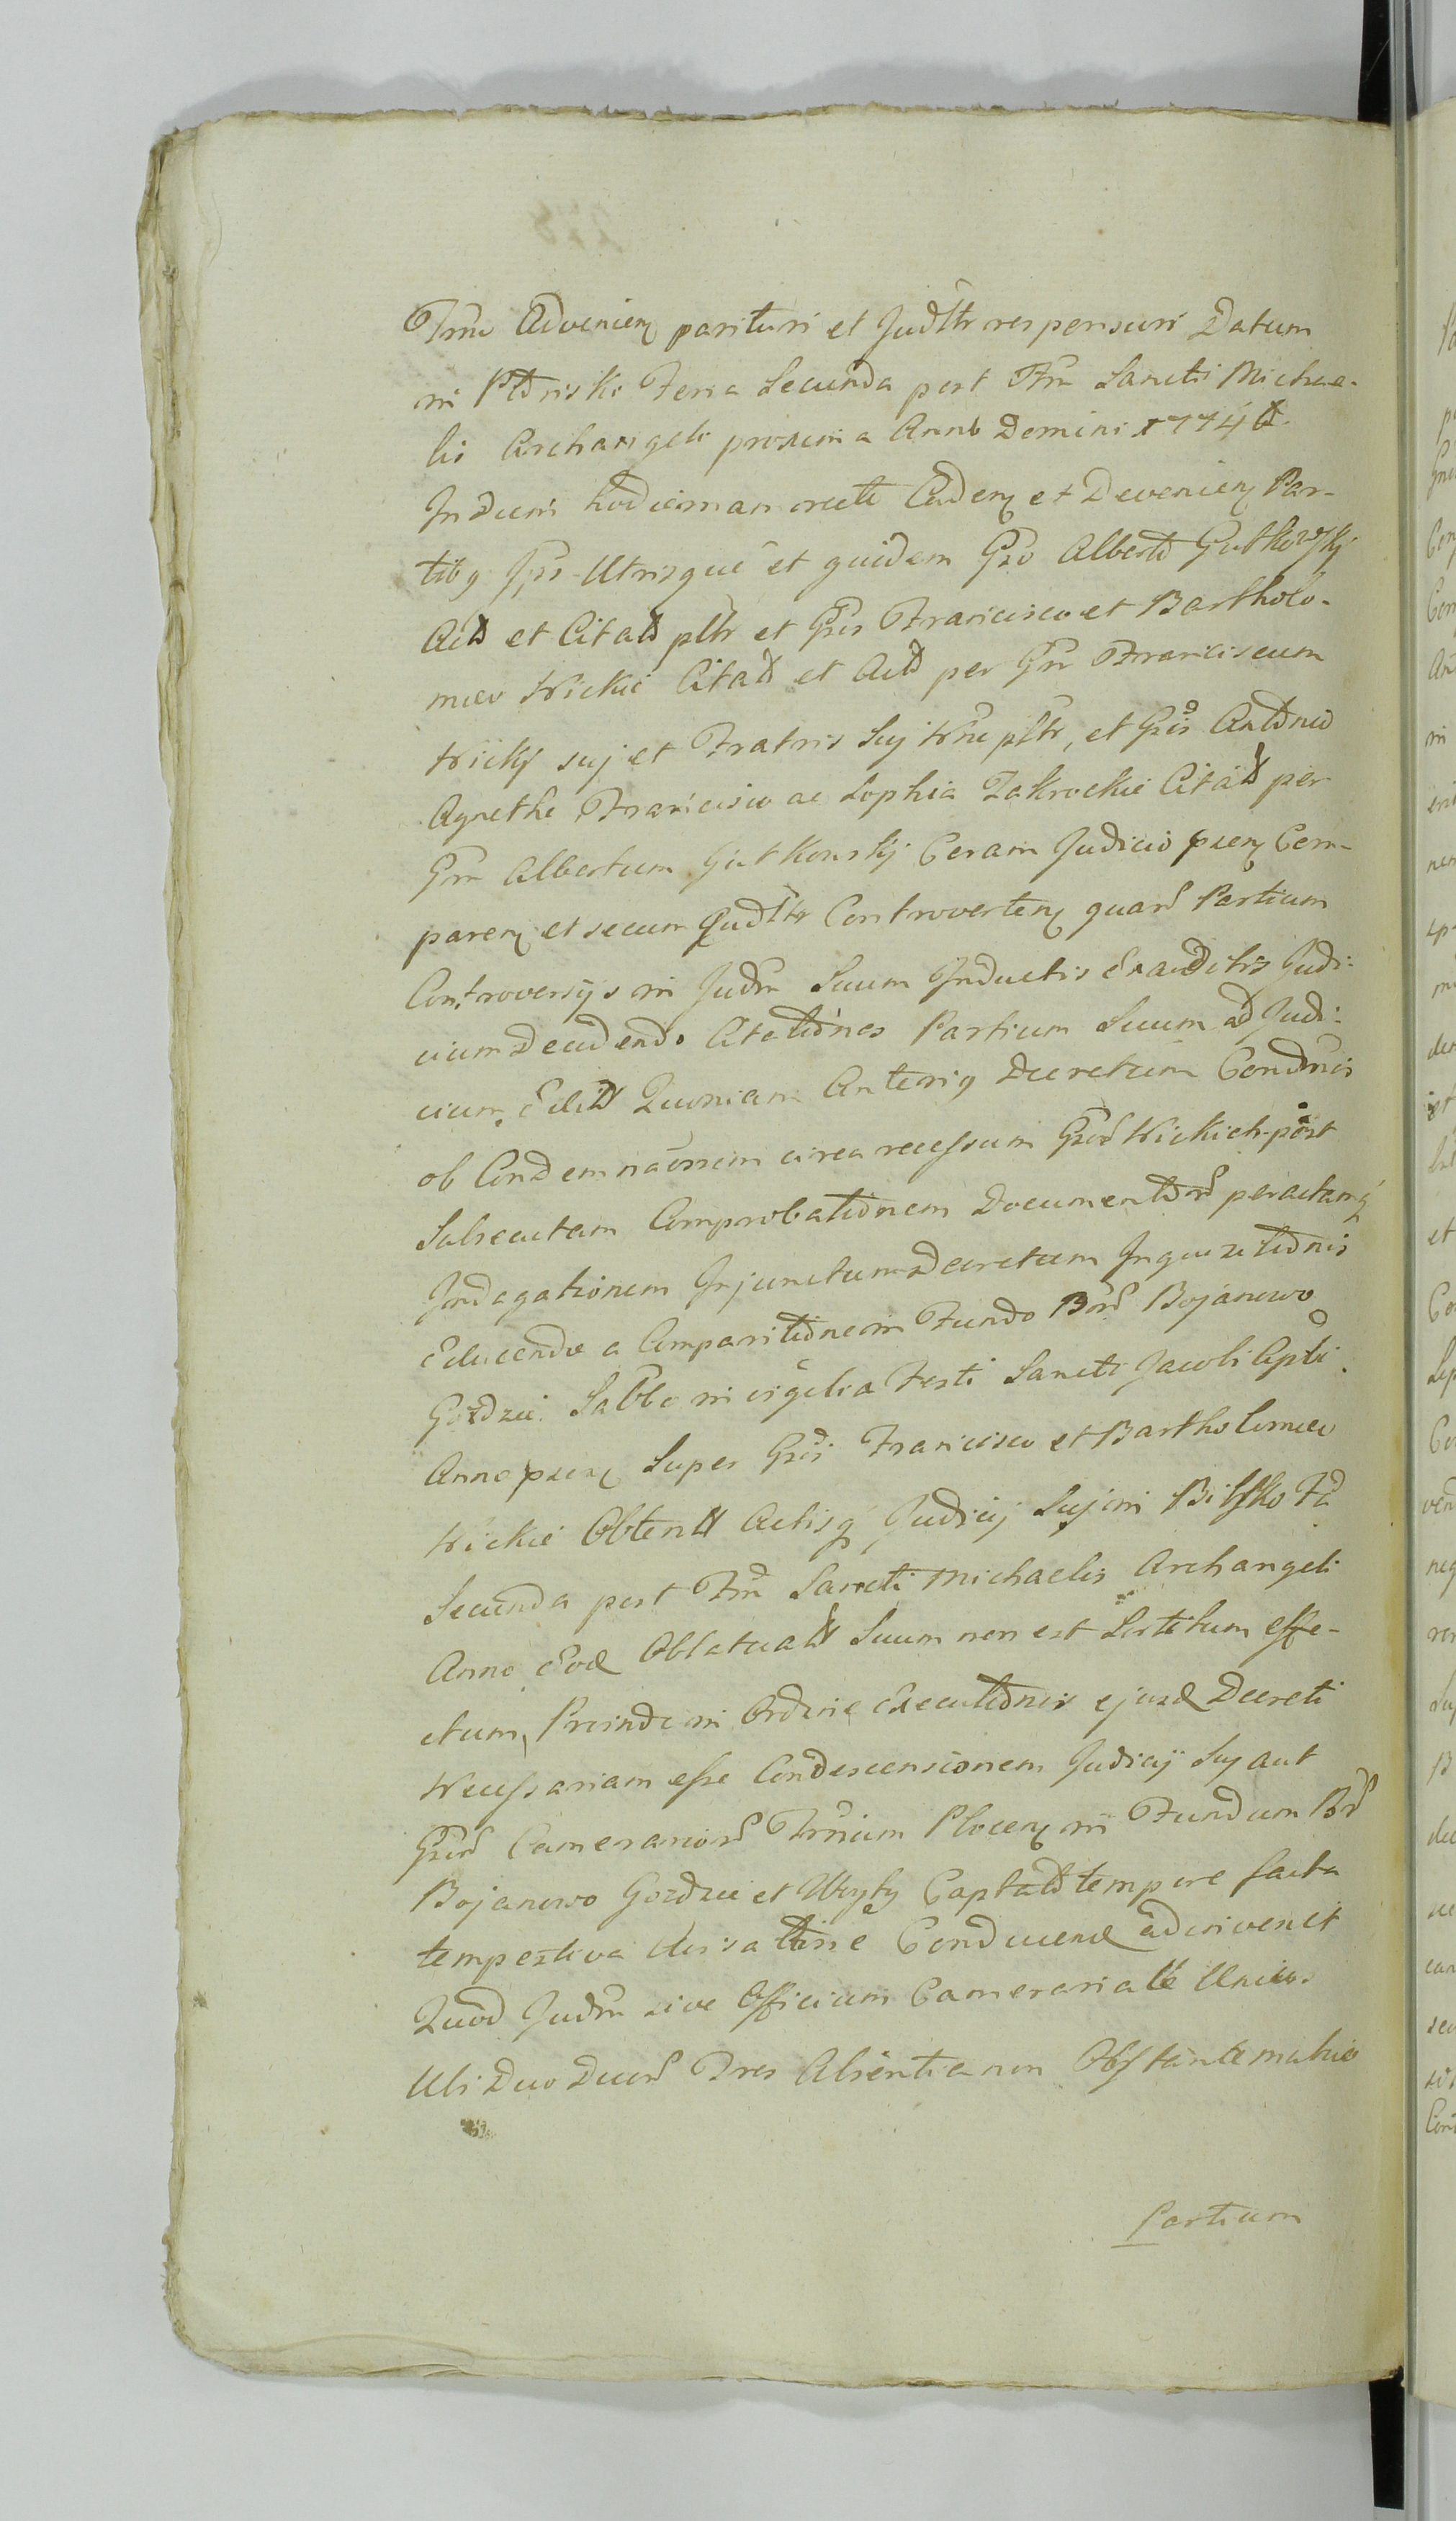 Trm̄o Advenien parituri et Juḋltr responsuri Datum
in Feria Secunda post Ftm Sancti Michae-
lis Archangeli proxima Anno Domini 174
In Diem hodiernam recte Caden et Devenien Par-
tibq Ipsis Utrisque et quidem Gso Alberto Gutkowskj
Act et Citat pltr et Gsis Francisco et Bartholo-
meo Wickie Citat et Act per Gsm Franciscum
Wickj suj et Fratris Suj Nrne pltr, et Gsis Antonio
Agnethe Francisco ac Sophia Zakrockie Citat per
Gsm Albertum Gutkowskj Coram Judicio psen Com-
paren et secum Judltr Controverten quar Partium
Controversijs in Judm Suum Inductis Exauditis Judi-
cium Decidendo Citationes Partium Suum ad Judi-
cium Edit Quoniam Anteriq Decretum Condnis
ob Condemnaonem circa recessum Gsor Wickich post
Subsecutam Comprobationem Documentor peractamq
Indagationem Injunctum Decretum Inquisitionis
Educende a Comparitionem Fundo Bor Bojanowo
Gozdzie Sabbo in vigilia Festi Sancti Jacobi Apli
Anno psen Super Gsis Francisco et Bartholomeo
Wickie Obtent Actisq Judicij Suj in Bilsko Fa
Secunda post Ftm Sancti Michaelis Archangeli
Anno Eod Oblatuat Suum non est Sortitum effe-
ctum, Proinde in Ordine Executionis ejusd Decreti
Necessariam esse Condescensionem Judicij Suj aut
Gsor Camerarior Trnium Plocen in Fundum Bor
Bojanowo Gozdzie et Captat tempore facta
tempestiva Conducend adinvenit
Quod Judm sive Officium Camerariale Unius
Ubi Duo Duor Tres Absentia non Obstante
Partium